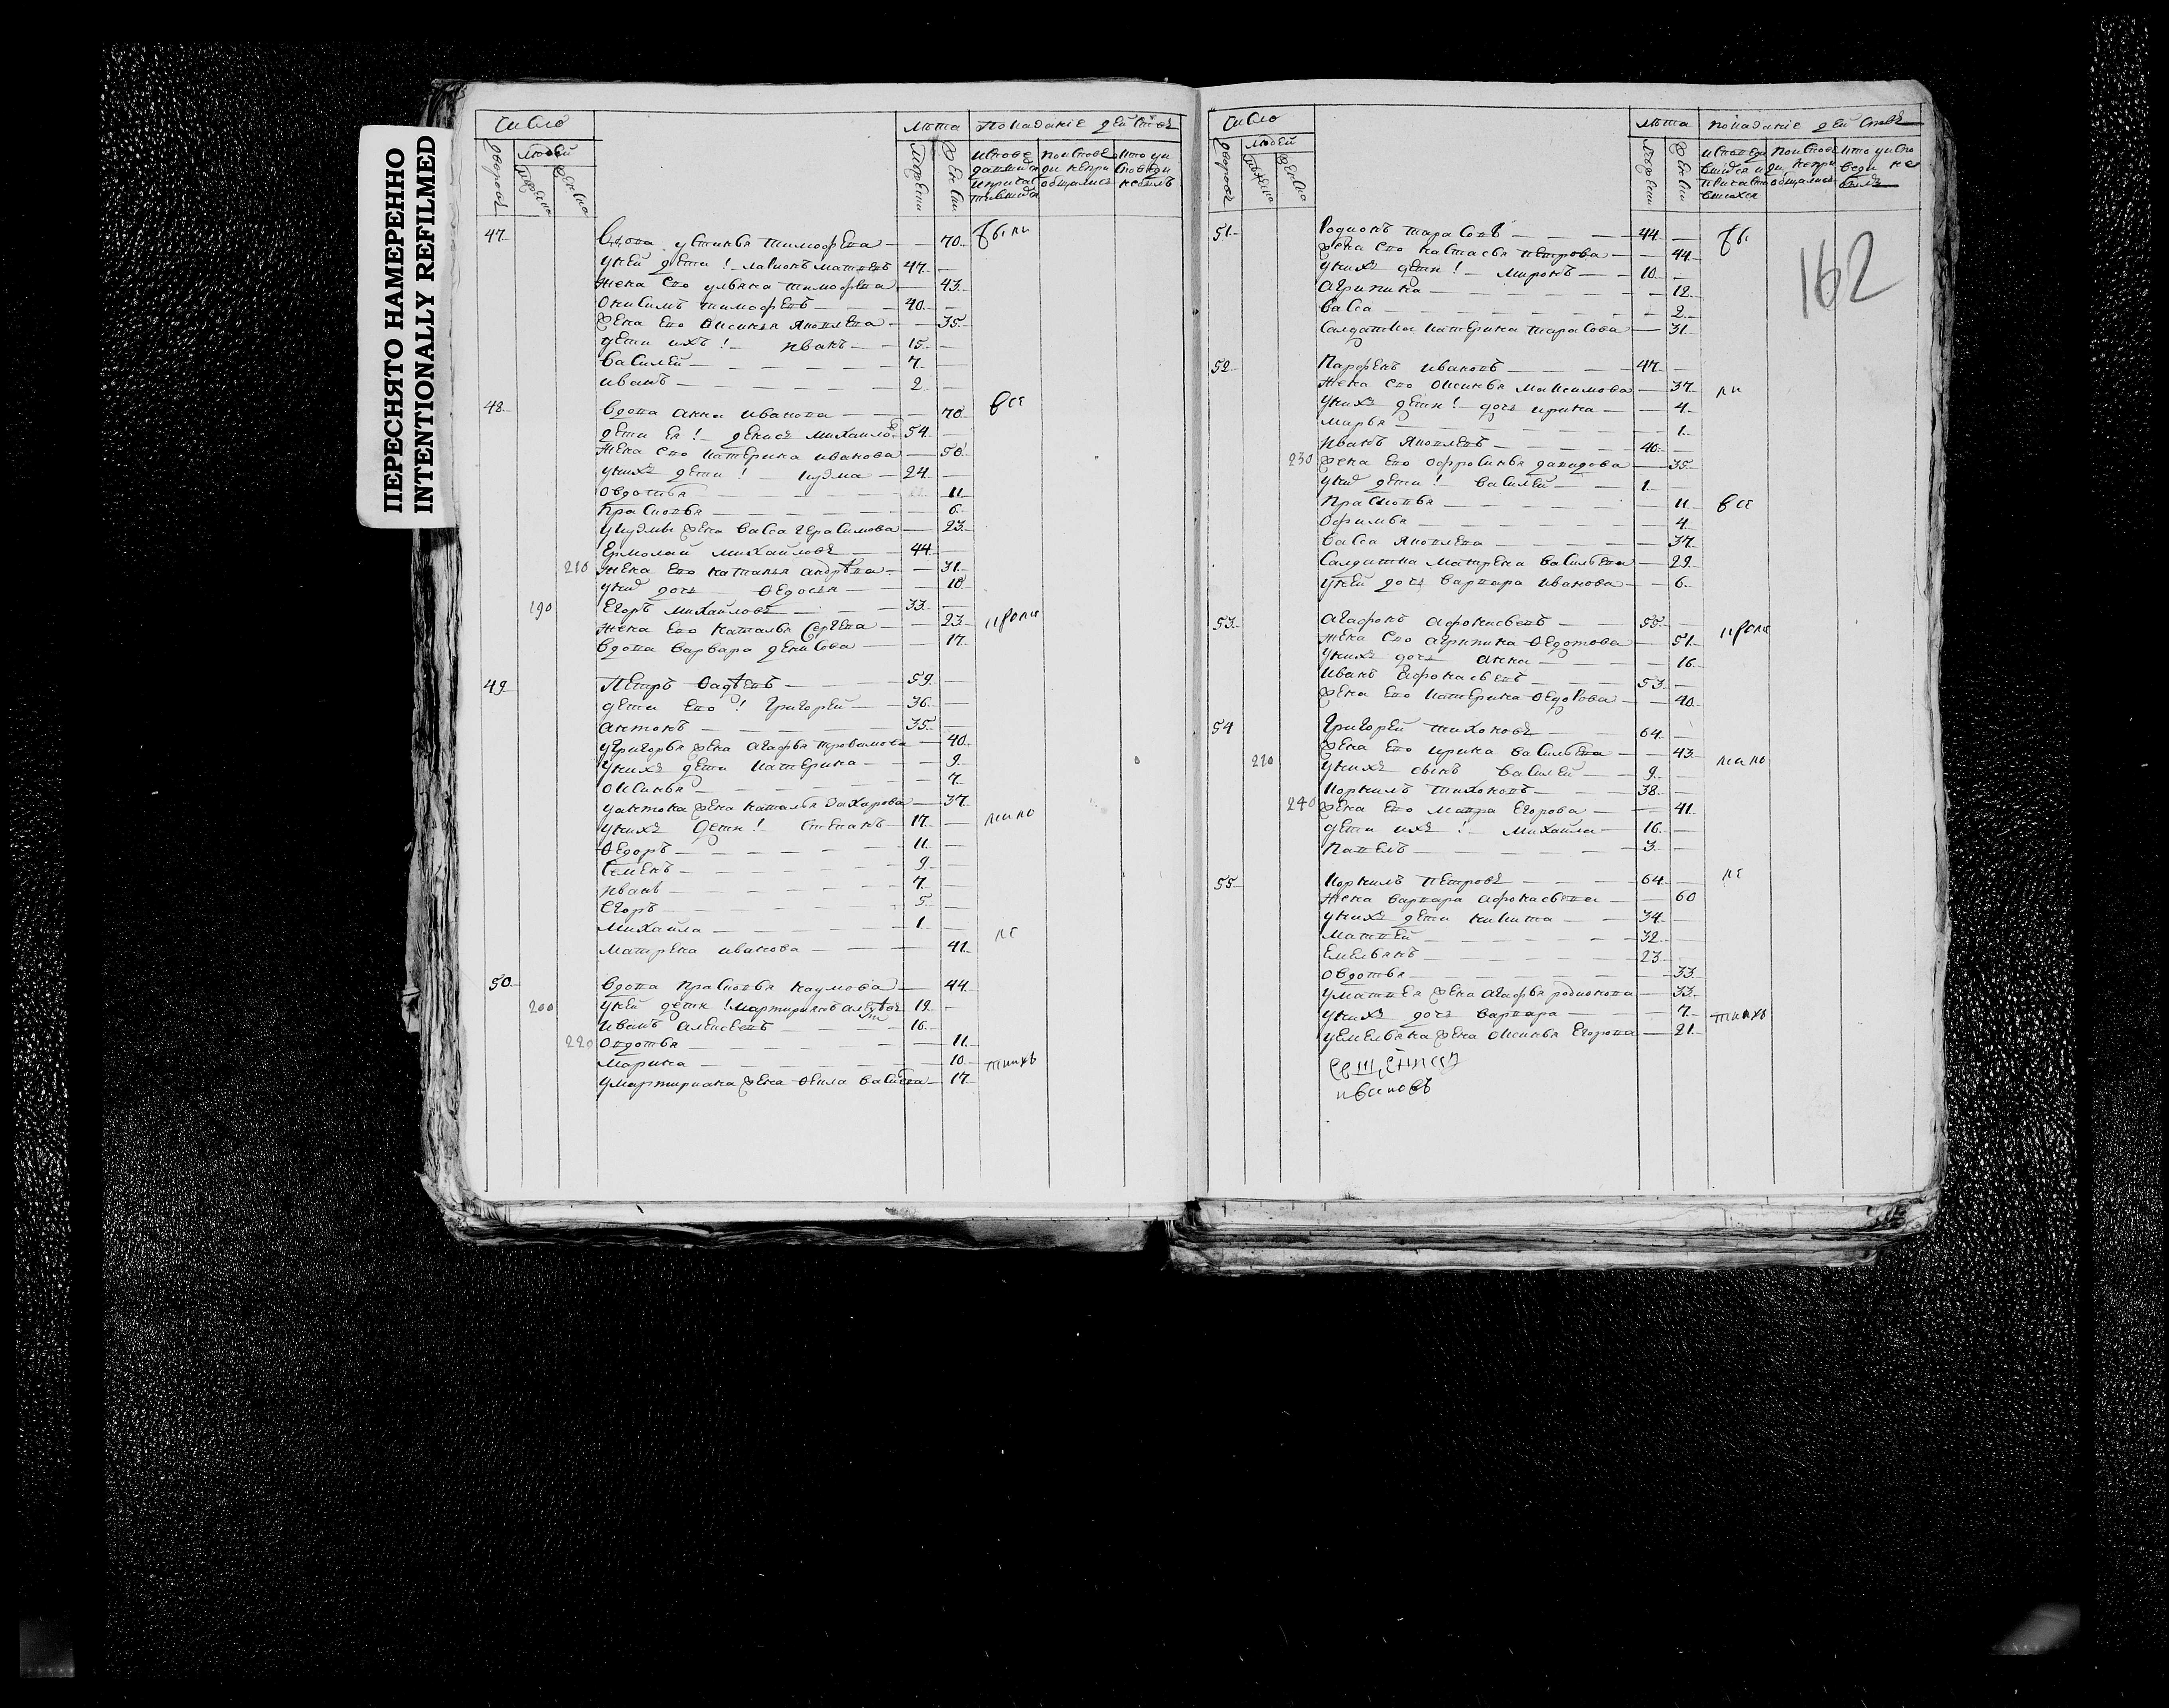 ПЕРЕСНЯТО НАМЕРЕННО
INTENTIONALLY REFILMED
число
лѣта
Показаніе действъ
дворовъ
людей
47. вдова устинья тимофеева — 70. были
у ней дети! ларионъ матвеевъ 47. —
жена его ульяна тимофеева — 43.
онисимъ тимофеевъ 40. —
жена его аксинья яковлева — 35.
дети ихъ! иванъ 15. —
василей 7. —
иванъ 2. —
48. вдова анна иванова — 70. все
дети ея! денисъ михайловъ 54. —
жена его катерина иванова — 50.
у нихъ дети! кузма 24. —
овдотья — 11.
прасковья — 6.
у кузмы жена васса герасимова — 23.
ермолай михайловъ 44. —
210 жена его наталья андрѣева — 31.
у них дочь ѳедосья — 10.
190 егоръ михайловъ 33. —
жена его наталья сергеева — 23.
вдова варвара денисова — 17.
49. петръ ѳадѣевъ 59. —
дети его! григорей 36. —
антонъ 35. —
у григорья жена агафья трофимова — 40.
у нихъ дети катерина — 9.
аксинья — 7.
у антона жена наталья захарова — 37.
у нихъ дети! степанъ 17. —
ѳедоръ 11. —
семенъ 9. —
иванъ 7. —
егоръ 5. —
михайла 1. —
матрена иванова — 41. не
50. вдова прасковья наумова — 44.
200 у ней дети! мартириянъ алексѣевъ 19. —
иванъ алексеевъ 16. —
220 овдотья — 11.
марина — 10.
у мартириана жена ѳекла васильева — 17.
число
лѣта
показаніе действъ
дворовъ
людей
162
51. родионъ тарасовъ 44. — бы
жена его настасья петрова — 44.
у нихъ дети! миронъ 10. —
агрипина — 12.
васса — 2.
салдатка катерина тарасова — 31.
52. парфенъ ивановъ 47. —
жена его аксинья максимова — 37. ли
у нихъ дети! дочь ирина — 4.
марья — 1.
иванъ яковлевъ 40. —
230 жена его офросинья давидова — 35.
у них дети! василей 1. —
прасковья — 11. все
офимья — 4.
васса яковлева — 37.
салдатка матрена васильева — 29.
у ней дочь варвара иванова — 6.
53. агафонъ афонасьевъ 55. —
жена его агрипина ѳедотова — 51.
у нихъ дочь анна — 16.
иванъ афонасьевъ 53. —
жена его катерина ѳедорова — 40.
54 григорей тихоновъ 64. —
жена его ирина васильева — 43.
210 у нихъ сынъ василей 9. —
корнилъ тихоновъ 38. —
240 жена его мавра егорова — 41.
дети ихъ! михайла 16. —
павелъ 3. —
55. корнилъ петровъ 64. — не
жена варвара афонасьева — 60
у нихъ дети никита 34. —
матвей 32. —
емельянъ 23. —
овдотья — 33.
у матвея жена агафья родионова — 33.
у нихъ дочь варвара — 7.
у емельяна жена аксинья егорова — 21.
ивановъ